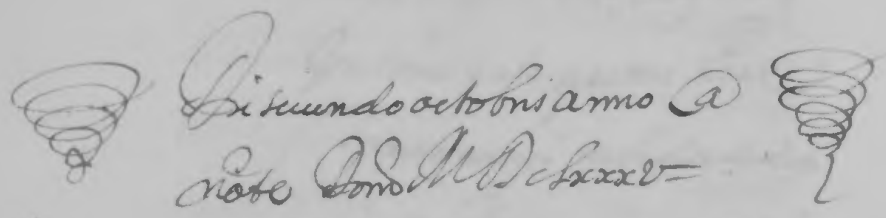 Di secundo octobris anno a
nate Dom̃ M Dclxxxv=